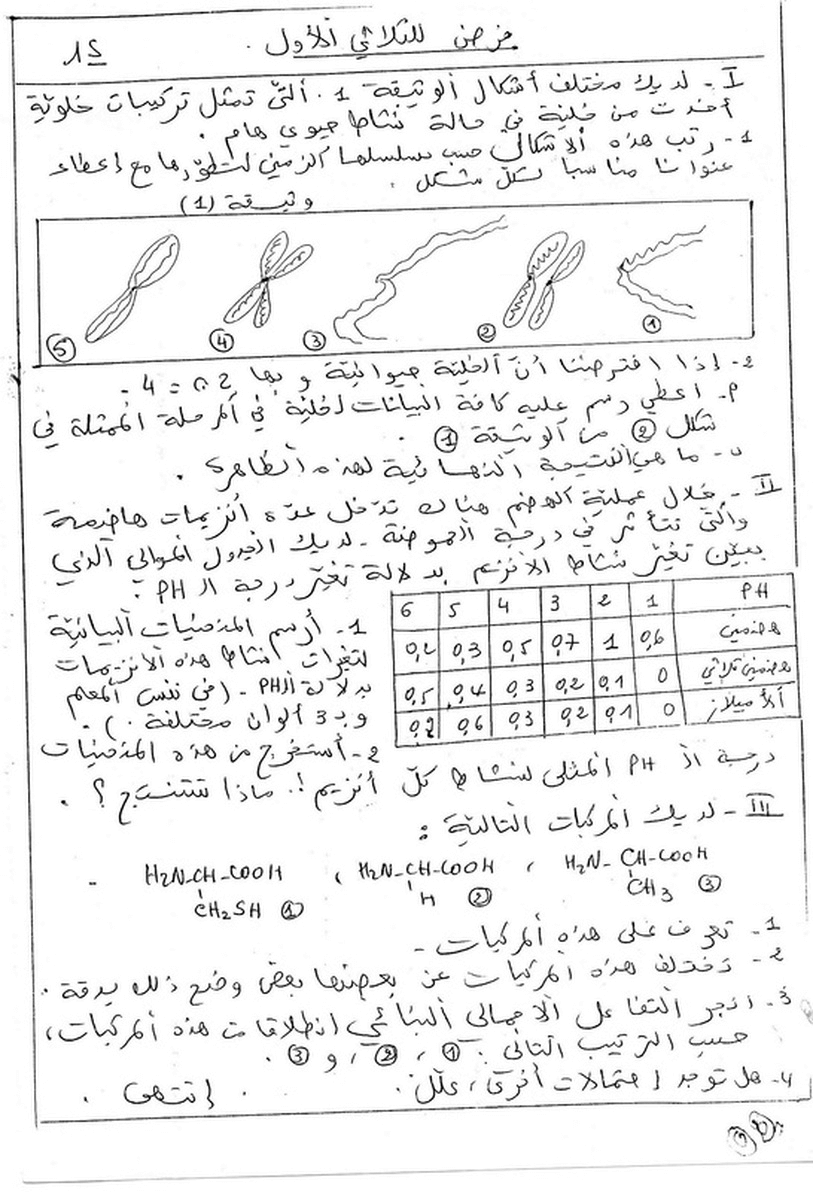 فرض للثلاثي الأول.
1S
I - لديك مختلف أشكال الوثيقة 1. التي تمثل تركيبات خلوية
أخذت من خلية في حالة نشاط حيوي هام.
1- رتب هذه الأشكال حسب تسلسلها الزمني لتطورها مع إعطاء
عنوانا مناسبا لكل شكل.
وثيقة (1)
5 4 3 2 1
2- إذا افترضنا أن الخلية حيوانية وبها 2n = 4.
أ- اعطي رسم عليه كافة البيانات لخلية في المرحلة الممثلة في
شكل 2 من الوثيقة 1.
ب- ما هي النتيجة النهائية لهذه الظاهرة؟
II - خلال عملية الهضم هناك تدخل عدة أنزيمات هاضمة
والتي تتأثر في درجة الحموضة. لديك الجدول الموالي الذي
يبين تغير نشاط الأنزيم بدلالة تغير درجة الـ PH:
PH 1 2 3 4 5 6
هضمين 0,6 1 0,7 0,5 0,3 0,2
هضمين ثلاثي 0 0,1 0,2 0,3 0,4 0,5
الأميلاز 0 0,1 0,2 0,3 0,6
1- أرسم المنحنيات البيانية
لتغيرات نشاط هذه الأنزيمات
بدلالة الـ PH - (في نفس المعلم
وبـ 3 ألوان مختلفة.)
2- أستخرج من هذه المنحنيات
درجة الـ PH المثلى لنشاط كل أنزيم! ماذا تستنتج؟
III - لديك المركبات التالية:
H2N-CH-COOH ، H2N-CH-COOH ، H2N-CH-COOH
CH2SH 1 H 2 CH3 3
1- تعرف على هذه المركبات -
2- تختلف هذه المركبات عن بعضها بعض وضح ذلك بدقة.
3- انجز التفاعل الاجمالي البنائي انطلاقا من هذه المركبات،
حسب الترتيب التالي: 1، 2، و 3.
4- هل توجد احتمالات أخرى، علل. إنتهى.